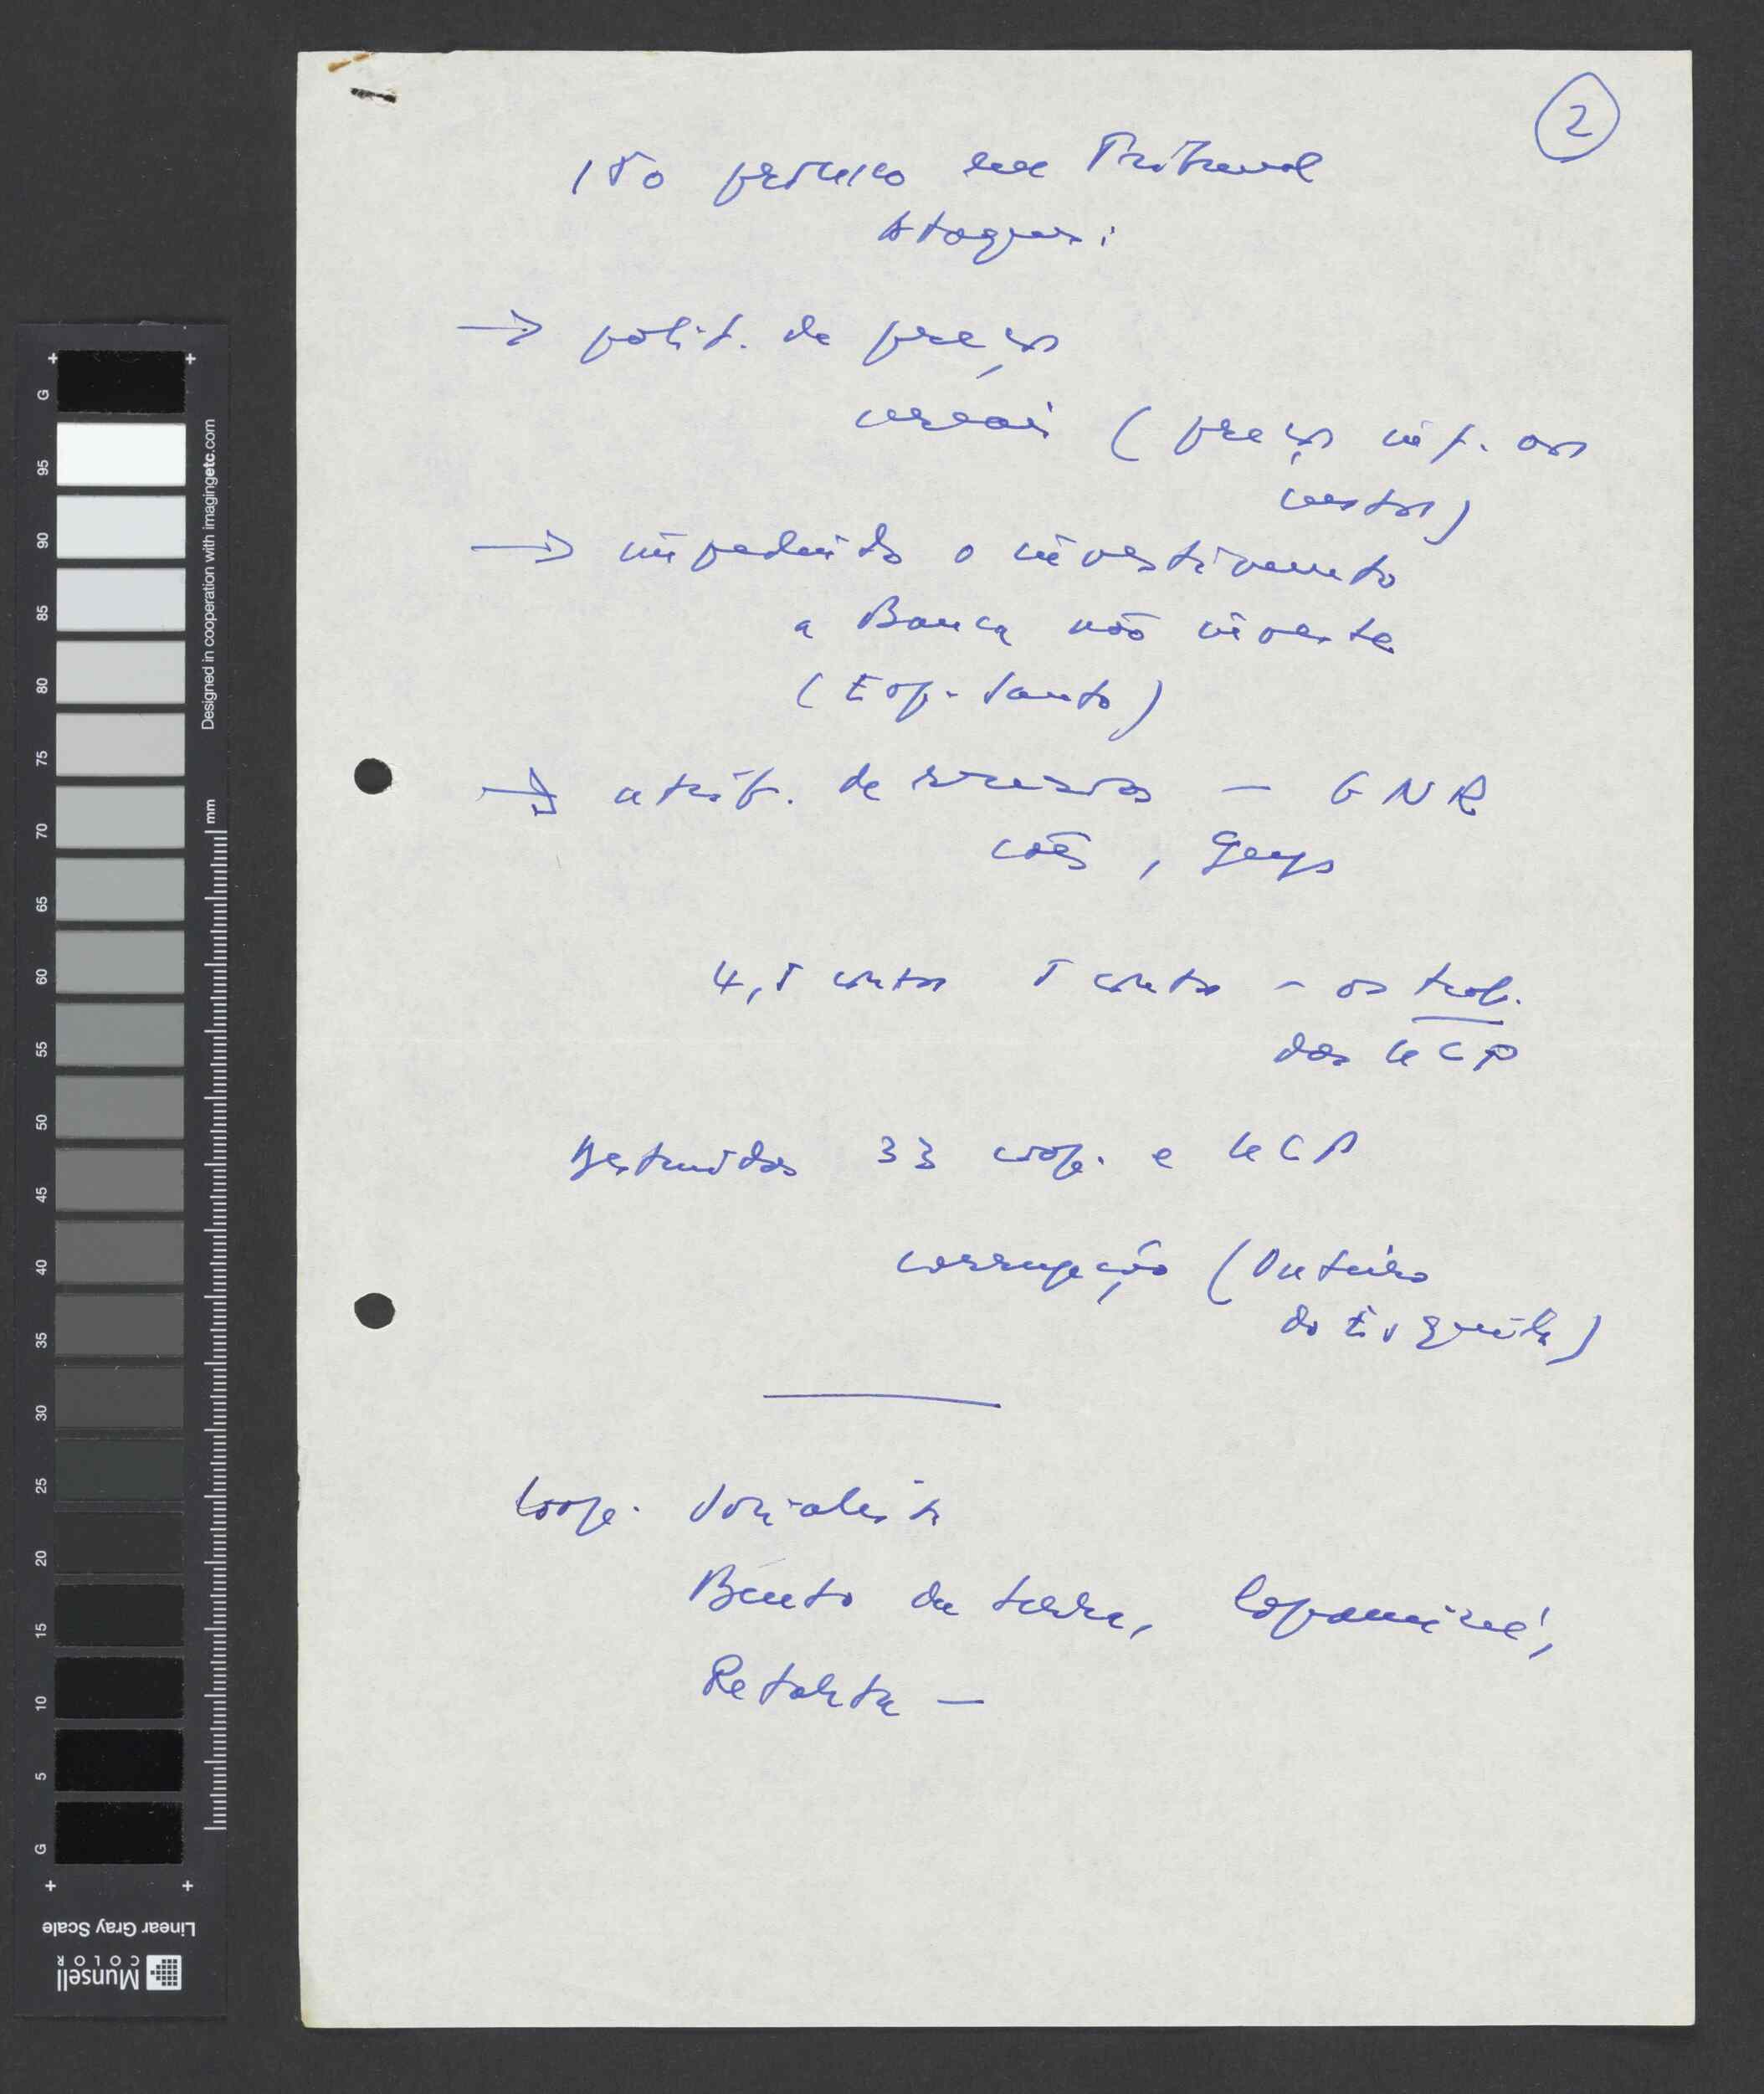 2
150 processo no Tribunal
Ataques:
→ polit. de preços
cereais ( preços inf. aos
custos)
→ impedindo o investimento
a Banca não investe
(Esp. Santo)
→ atrib. de reservas — GNR
cães, Gangs
4,5 contos 5 contos - os trab.
das UCP
Destruídas 33 coop. e UCP
corrupção (Outeiro
do Esquila)
Coop. Socialista
Bento da terra,
Retorta —
G 95 90 85 80 75 70 65 60 55 50 45 40 35 30 25 20 15 10 5 G
mm
Designed in cooperation with imagingetc.com
Linear Gray Scale
Munsell
COLOR